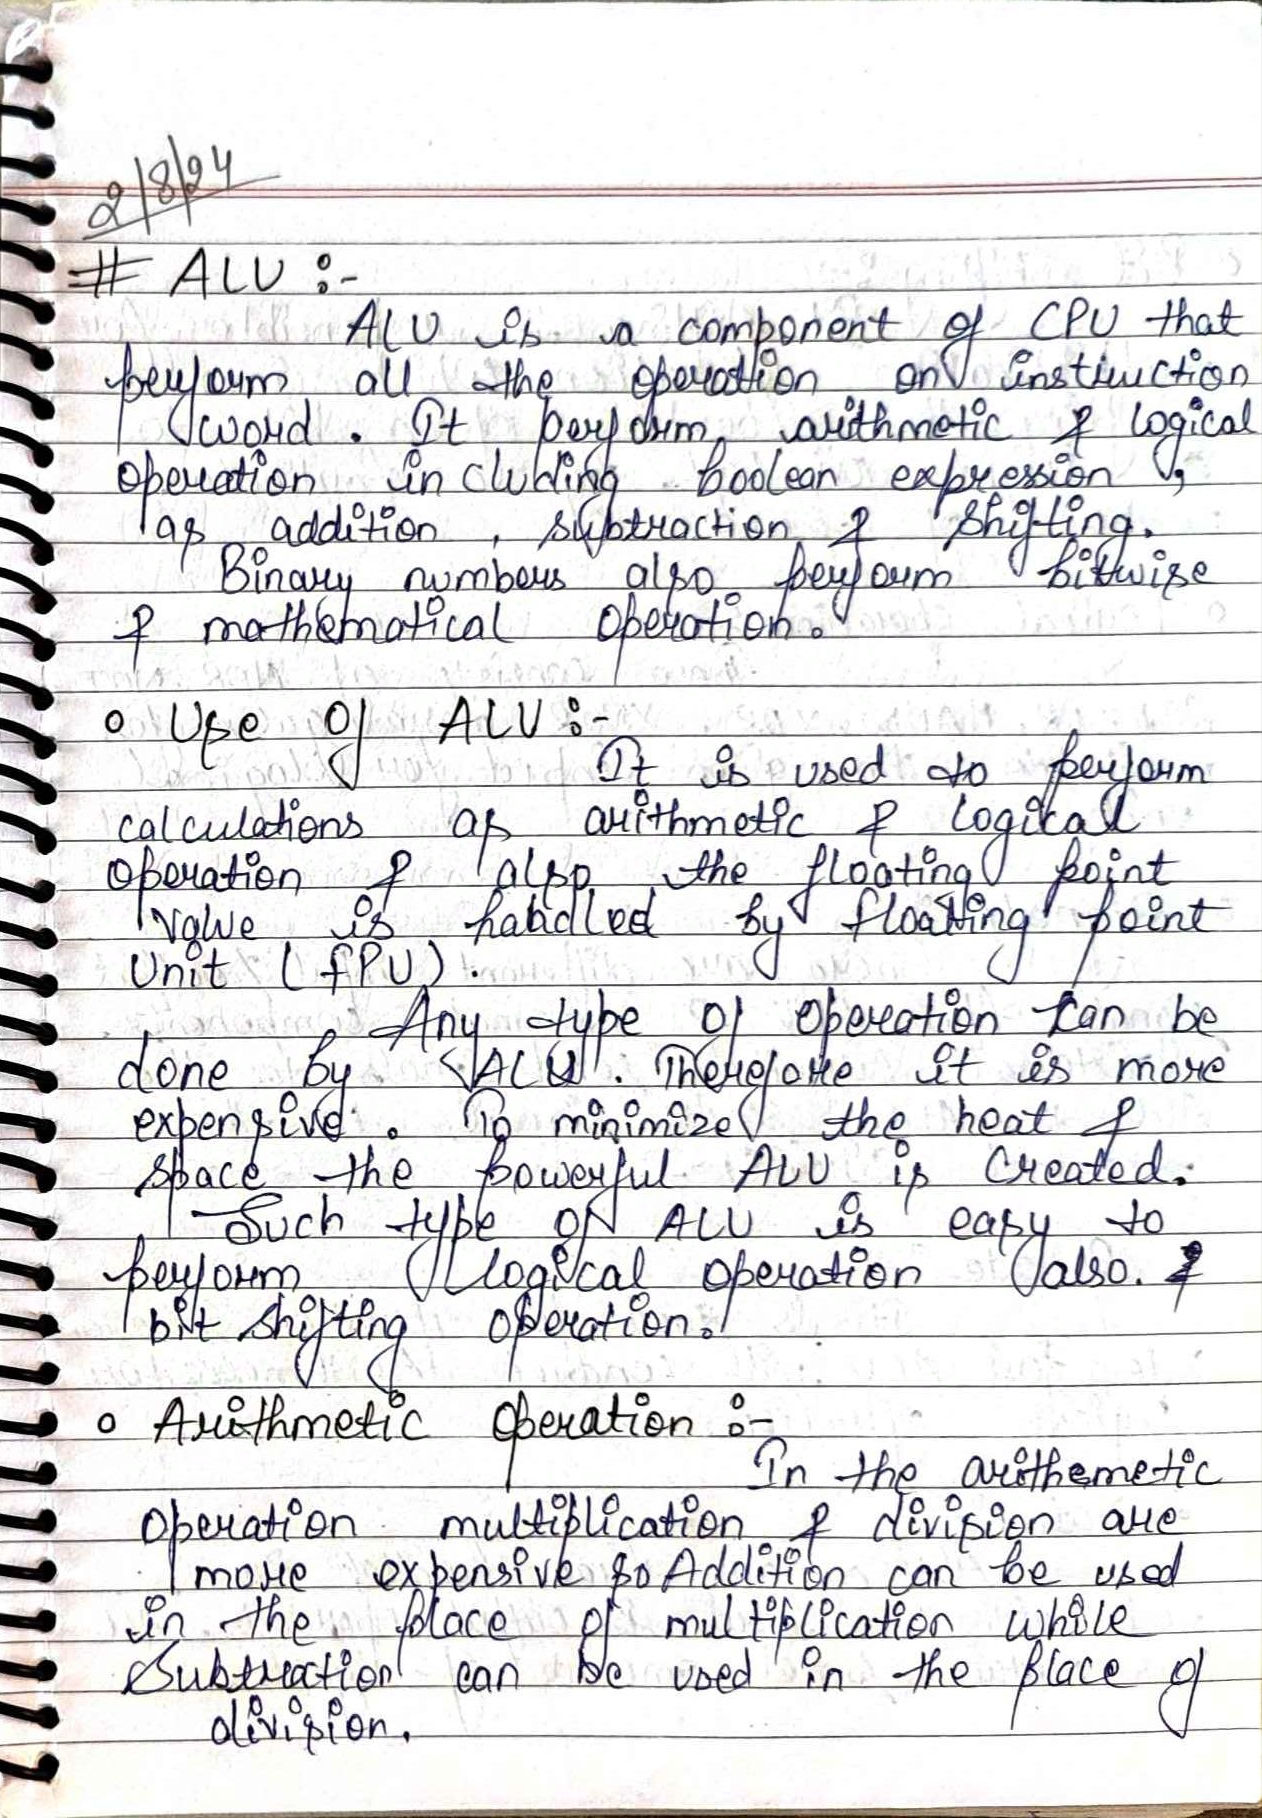 2/8/24
# ALU :-
ALU is a component of CPU that
perform all the operation on instruction
word. It perform arithmetic & logical
operation including boolean expression,
as addition, subtraction & shifting.
Binary numbers also perform bitwise
& mathematical operation.
o Use of ALU :-
It is used to perform
calculations as arithmetic & logical
operation & also the floating point
value is habdled by floating point
Unit (fPU).
Any type of operation can be
done by ALU. Therefore it is more
expensive. To minimize the heat &
space the powerful ALU is Created.
Such type of ALU is easy to
perform logical operation also. &
bit shifting operation.
o Arithmetic operation :-
In the arithemetic
operation multiplication & division are
more expensive so Addition can be used
in the place of multiplication while
Subtraction can be used in the place of
division.